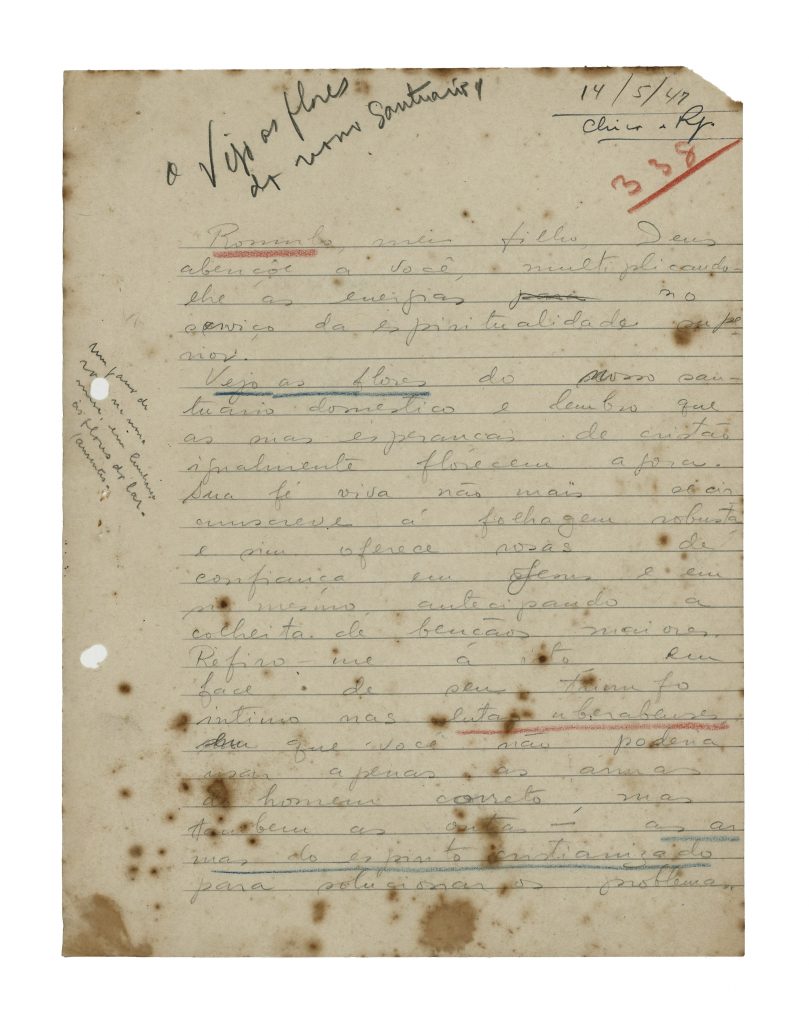 14/5/47
Chico - Rp
338
o Vejo as flores
do nosso Santuario,
Romulo, meu filho, Deus
abençôe a você, multiplicando-
lhe as energias para no
serviço da espiritualidade supe
rior.
Vejo as flores do nosso san-
tuário doméstico e lembro que
as suas esperanças de cristão
igualmente florecem agora.
Sua fé viva não mais se cir
cunscreve á folhagem robusta
e sim oferece rosas de
confiança em Jesus e em
si mesmo, antecipando a
colheita de bençãos maiores.
Refiro-me á isto em
face de seu triunfo
intimo nas lutas uberabenses,
em que você não poderia
usar apenas as armas
do homem correto, mas
tambem as outras — as ar
mas do espirito cristianizado
para solucionar os problemas.
um
de
no
em
as flores do lar.